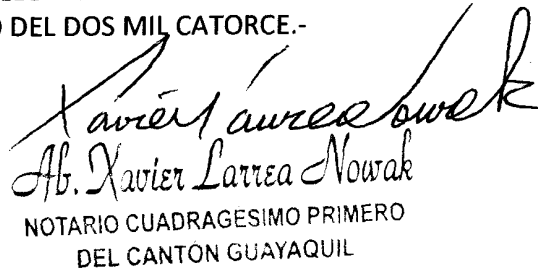 O DEL DOS MIL CATORCE.-
Xavier Larrea Nowak
Ab. Xavier Larrea Nowak
NOTARIO CUADRAGESIMO PRIMERO
DEL CANTON GUAYAQUIL